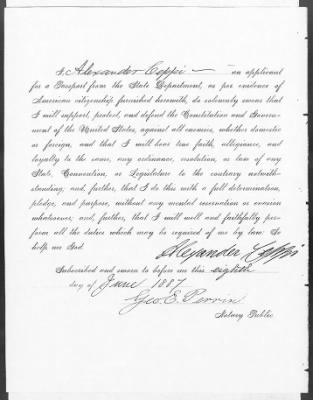 I, Alexander Coppi — an applicant
for a Passport from the State Department, as per evidence of
American citizenship furnished herewith, do solemnly swear that
I will support, protect, and defend the Constitution and Govern-
ment of the United States, against all enemies, whether domestic
or foreign, and that I will bear true faith, allegiance, and
loyalty to the same, any ordinance, resolution, or law of any
State, Convention, or Legislature to the contrary notwith-
standing; and, further, that I do this with a full determination,
pledge, and purpose, without any mental reservation or evasion
whatsoever, and, further, that I will well and faithfully per-
form all the duties which may be required of me by law: So
help me God.
Alexander Coppi
Subscribed and sworn to before me this eighth
day of June 1887
Geo. E. Perrin
Notary Public